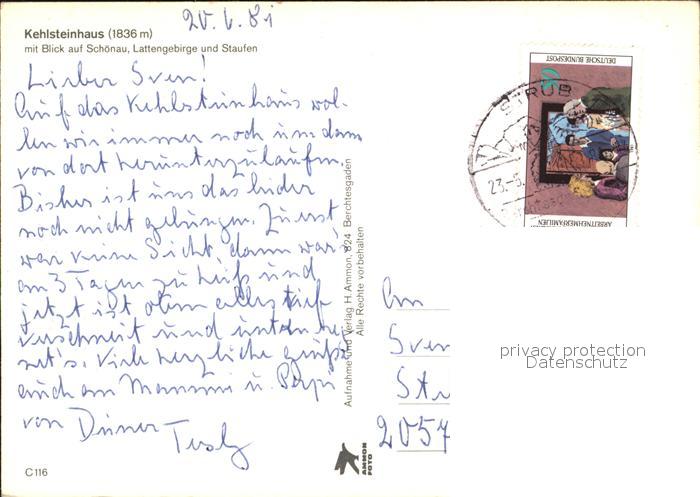 20.6.81
Kehlsteinhaus (1836 m)
mit Blick auf Schönau, Lattengebirge und Staufen
Lieber Sven!
Auf das Kehlsteinhaus wol-
len wir immer noch um dann
von dort herunterzulaufen.
Bisher ist uns das leider
noch nicht gelungen. Zuerst
war keine Sicht, dann war's
an 3 Tagen zu heiß und
jetzt ist oben alles tief
verschneit und unten
net's. Viele herzliche Grüße
auch an Mammi u. Papi
von Deiner
C 116
Aufnahme und Verlag H. Ammon, 824 Berchtesgaden
Alle Rechte vorbehalten
AMMON
FOTO
DEUTSCHE BUNDESPOST
ARBEITNEHMERFAMILIEN
STRUB
23.-5.
An
Sven
2057
privacy protection
Datenschutz